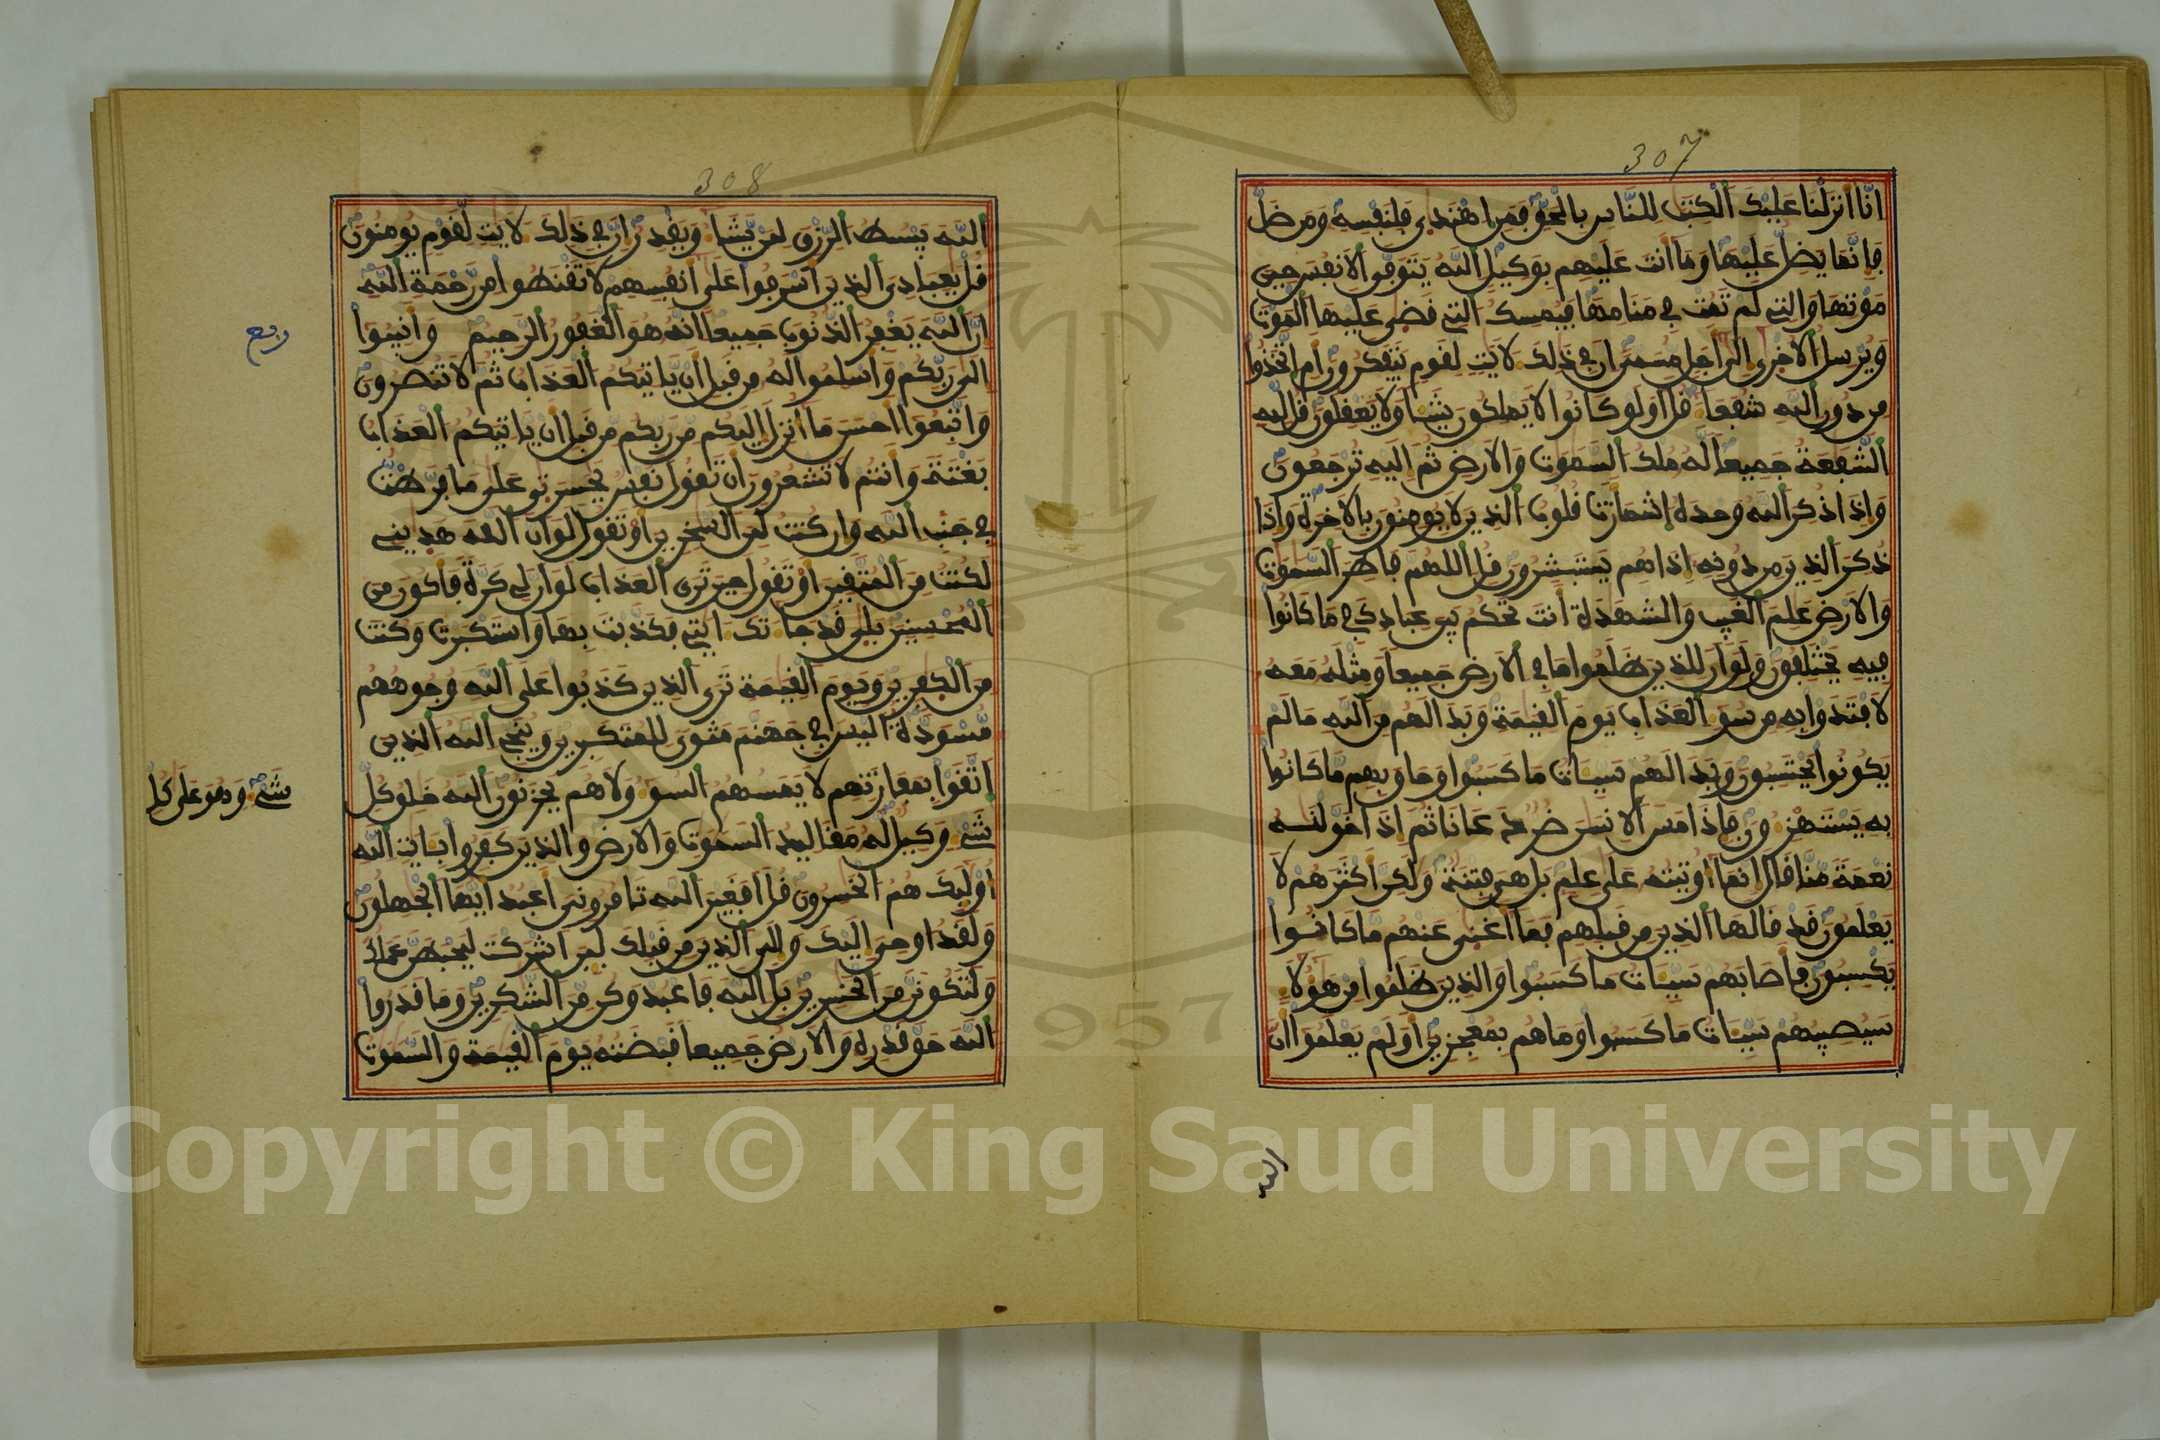 307
انا انزلنا عليك الكتب للناس بالحق فمن اهتدى فلنفسه ومن ضل
فانما يضل عليها وما انت عليهم بوكيل الله يتوفى الانفس حين
موتها والتي لم تمت في منامها فيمسك التي قضى عليها الموت
ويرسل الاخرى الى اجل مسمى ان في ذلك لايت لقوم يتفكرون ام اتخذوا
من دون الله شفعاء قل اولو كانوا لا يملكون شيئا ولا يعقلون قل لله
الشفعة جميعا له ملك السموت والارض ثم اليه ترجعون
واذا ذكر الله وحده اشمازت قلوب الذين لا يومنون بالاخرة واذا
ذكر الذين من دونه اذا هم يستبشرون قل اللهم فاطر السموت
والارض علم الغيب والشهدة انت تحكم بين عبادك في ما كانوا
فيه يختلفون ولو ان للذين ظلموا ما في الارض جميعا ومثله معه
لافتدوا به من سوء العذاب يوم القيمة وبدا لهم من الله ما لم
يكونوا يحتسبون وبدا لهم سيئات ما كسبوا وحاق بهم ما كانوا
به يستهزءون فاذا مس الانسن ضر دعانا ثم اذا خولنه
نعمة منا قال انما اوتيته على علم بل هي فتنة ولكن اكثرهم لا
يعلمون قد قالها الذين من قبلهم فما اغنى عنهم ما كانوا
يكسبون فاصابهم سيئات ما كسبوا والذين ظلموا من هولاء
سيصيبهم سيئات ما كسبوا وما هم بمعجزين اولم يعلموا ان
الله
308
الله يبسط الرزق لمن يشاء ويقدر ان في ذلك لايت لقوم يومنون
قل يعبادي الذين اسرفوا على انفسهم لا تقنطوا من رحمة الله
ان الله يغفر الذنوب جميعا انه هو الغفور الرحيم وانيبوا
ربع
الى ربكم واسلموا له من قبل ان ياتيكم العذاب ثم لا تنصرون
واتبعوا احسن ما انزل اليكم من ربكم من قبل ان ياتيكم العذاب
بغتة وانتم لا تشعرون ان تقول نفس يحسرتى على ما فرطت
في جنب الله وان كنت لمن السخرين او تقول لو ان الله هديني
لكنت من المتقين او تقول حين ترى العذاب لو ان لي كرة فاكون من
المحسنين بلى قد جاءتك ايتي فكذبت بها واستكبرت وكنت
من الكفرين ويوم القيمة ترى الذين كذبوا على الله وجوههم
مسودة اليس في جهنم مثوى للمتكبرين وينجي الله الذين
اتقوا بمفازتهم لا يمسهم السوء ولا هم يحزنون الله خلق كل
شيء وهو على كل
شيء وكيل له مقاليد السموت والارض والذين كفروا بايت الله
اوليك هم الخسرون قل افغير الله تامروني اعبد ايها الجهلون
ولقد اوحي اليك والى الذين من قبلك لين اشركت ليحبطن عملك
ولتكونن من الخسرين بل الله فاعبد وكن من الشكرين وما قدروا
الله حق قدره والارض جميعا قبضته يوم القيمة والسموت
1957
Copyright © King Saud University